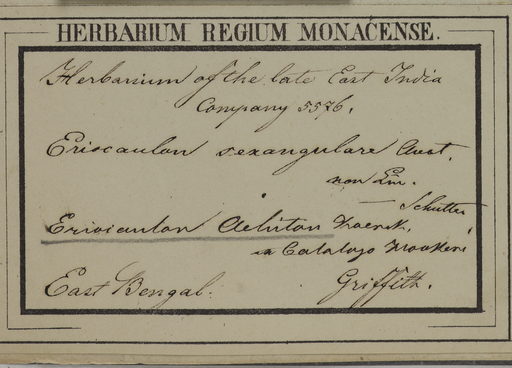 HERBARIUM REGIUM MONACENSE.
Herbarium of the late East India
Company 5576.
Eriocaulon sexangulare Auct.
non Lin.
Eriocaulon
in Catalogo Hookeri
East Bengal. Griffith.